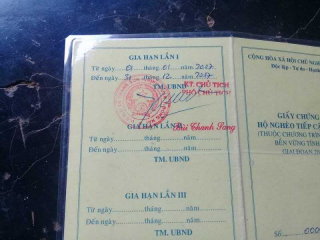 GIA HẠN LẦN I
Từ ngày 01 tháng 01 năm 2017
Đến ngày 31 tháng 12 năm 2017
TM. UBND
KT. CHỦ TỊCH
PHÓ CHỦ TỊCH
GIA HẠN LẦN II
Bùi Thanh Sang
Từ ngày.........tháng.........năm.........
Đến ngày.........tháng.........năm.........
TM. UBND
GIA HẠN LẦN III
Từ ngày.........tháng.........năm.........
Đến ngày.........tháng.........năm.........
TM. UBND
CỘNG HÒA XÃ HỘI CHỦ NGH
Độc lập - Tự do - Hạnh
GIẤY CHỨNG
HỘ NGHÈO TIẾP CẬ
(THUỘC CHƯƠNG TRÌN
BỀN VỮNG TỈNH
GIAI ĐOẠN, 20
Số